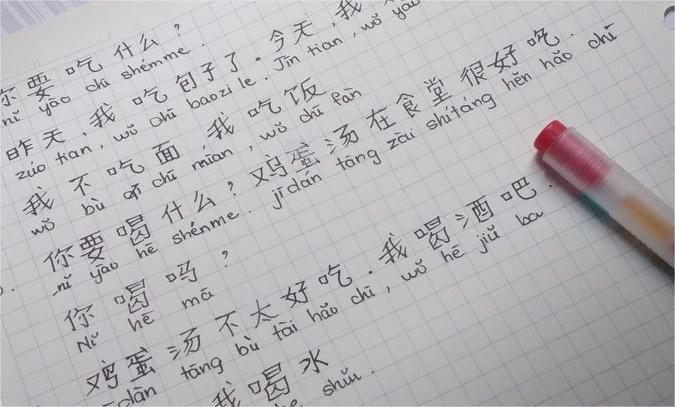 你要吃什么？
nǐ yào chī shénme.
昨天，我吃包子了。今天，我
zuó tian, wǒ chī baozi le. Jīn tian, wǒ yào
我不吃面，我吃饭
wǒ bù chī mian, wǒ chī fàn
你要喝什么？鸡蛋汤在食堂很好吃.
nǐ yào hē shénme. jīdán tāng zài shítáng hěn hǎo chī
你喝吗？
Nǐ hē mā
鸡蛋汤不太好吃.我喝酒吧.
jīdàn tāng bù tài hǎo chī, wǒ hē jiǔ ba
我喝水